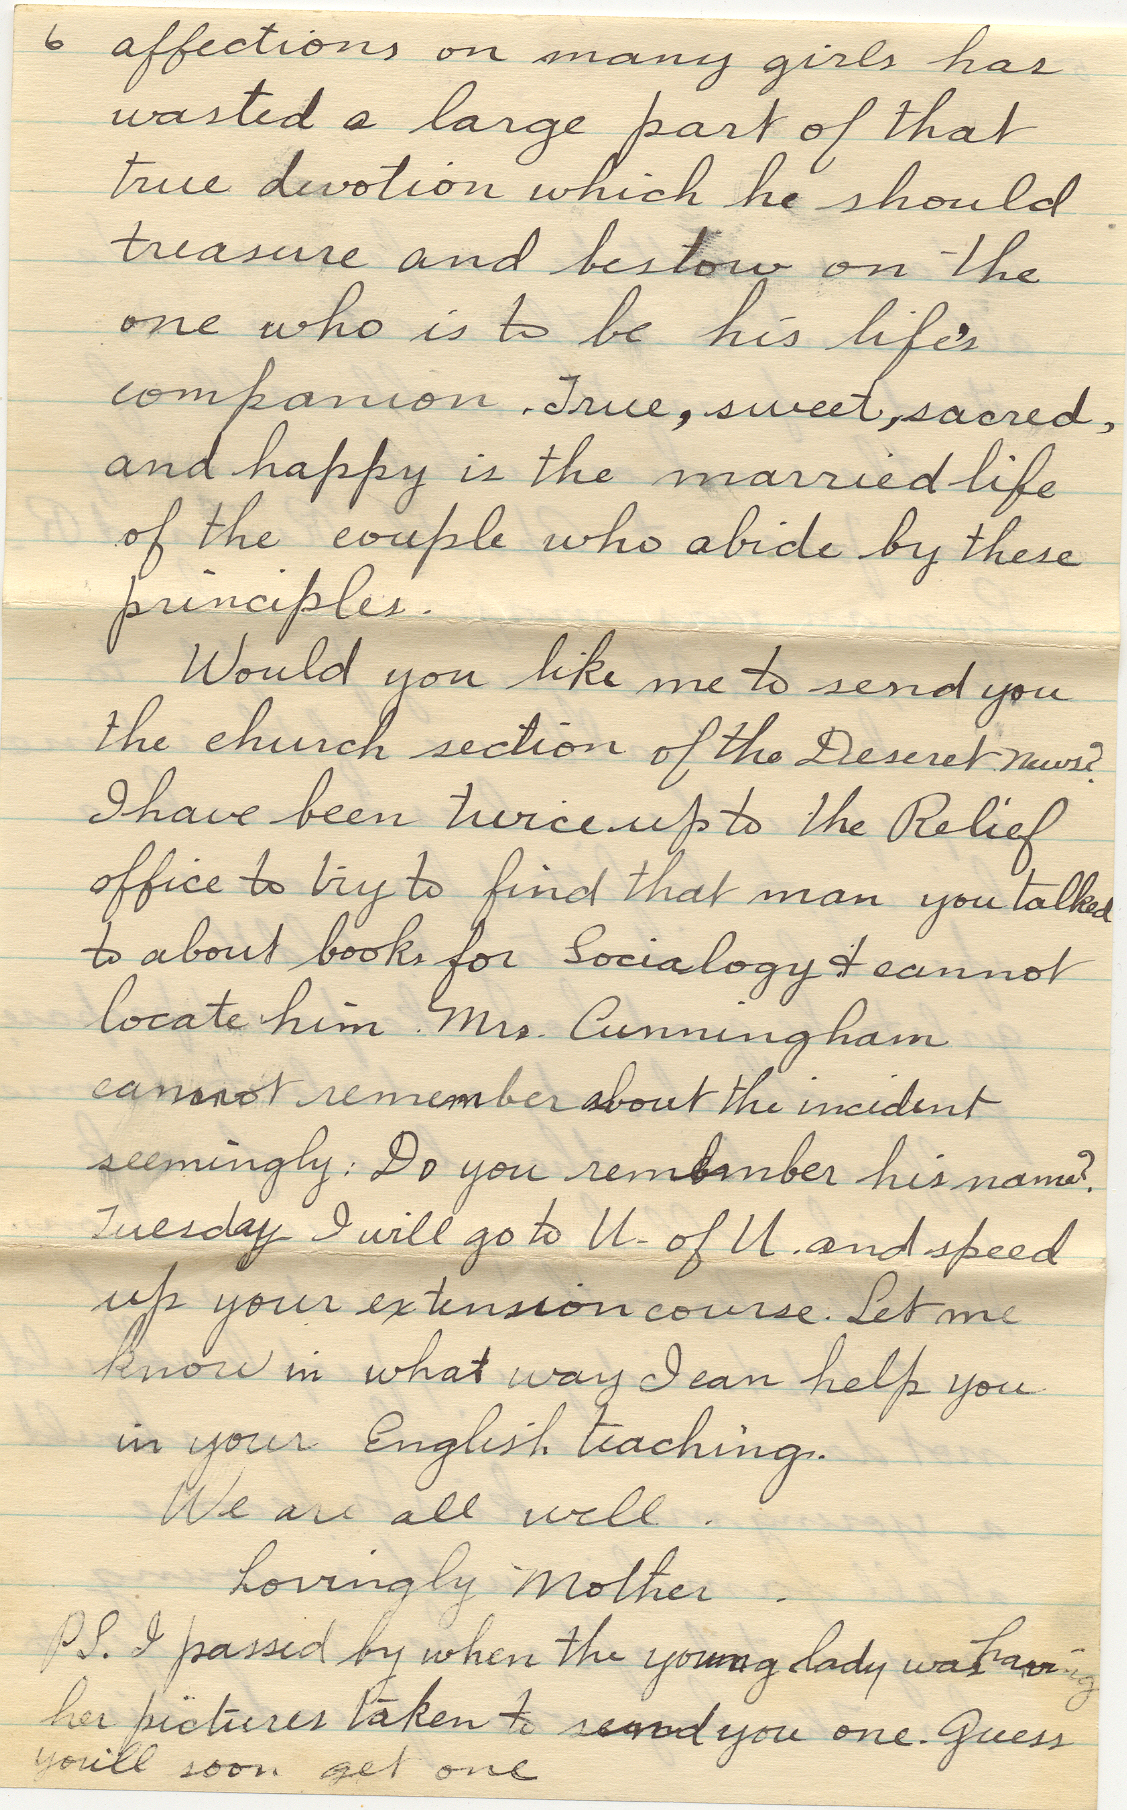 6 affections on many girls has
wasted a large part of that
true devotion which he should
treasure and bestow on the
one who is to be his life's
companion. True, sweet, sacred,
and happy is the married life
of the couple who abide by these
principles.
Would you like me to send you
the church section of the Deseret News?
I have been twice up to the Relief
office to try to find that man you talked
to about books for Socialogy & cannot
locate him. Mrs. Cunningham
cannot remember about the incident
seemingly: Do you remember his name?
Tuesday I will go to U- of U. and speed
up your extension course. Let me
know in what way I can help you
in your English teaching.
We are all well.
Lovingly Mother.
P.S. I passed by when the young lady was having
her pictures taken to send you one. Guess
you'll soon get one